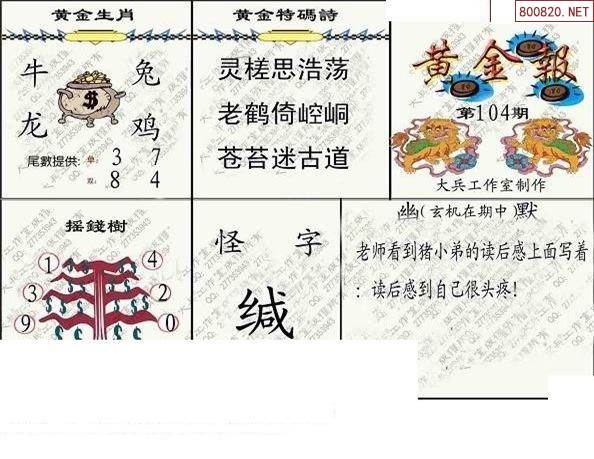 800820.NET
黄金生肖
牛 兔
龙 鸡
尾數提供: 单: 3 7
双: 8 4
黄金特碼詩
灵槎思浩荡
老鹤倚崆峒
苍苔迷古道
黄金報
第104期
大兵工作室制作
摇錢樹
1 4
3 2
9 0
怪 字
缄
幽(玄机在期中)默
老师看到猪小弟的读后感上面写着
：读后感到自己很头疼!